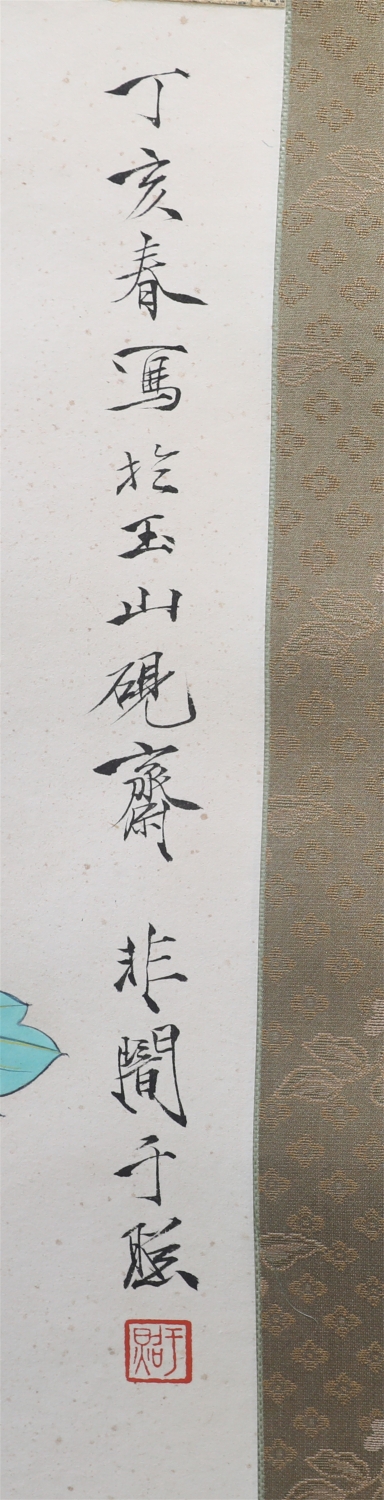 丁亥春寫於玉山硯齋 非闇于照
于照